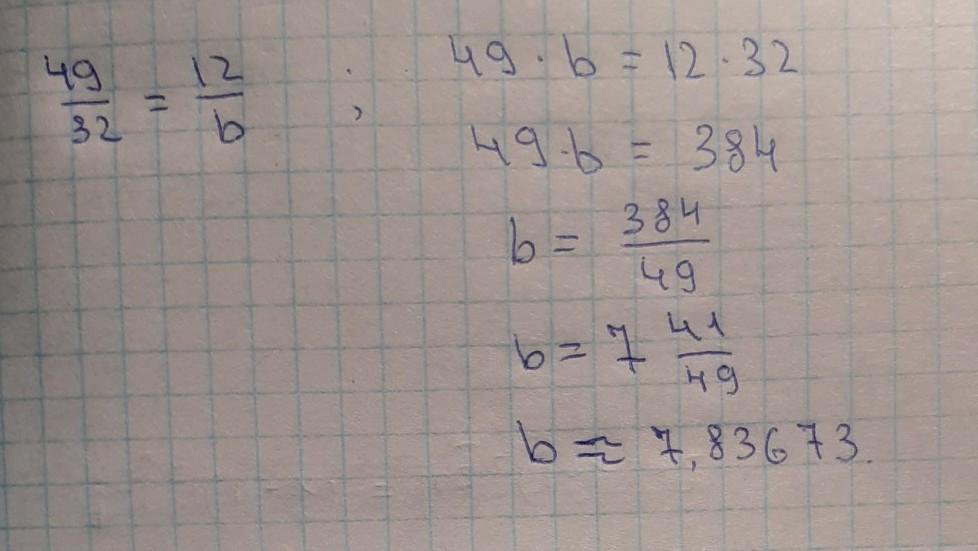 49/32 = 12/b ; 49 · b = 12 · 32
49 · b = 384
b = 384/49
b = 7 41/49
b ≈ 7,83673.